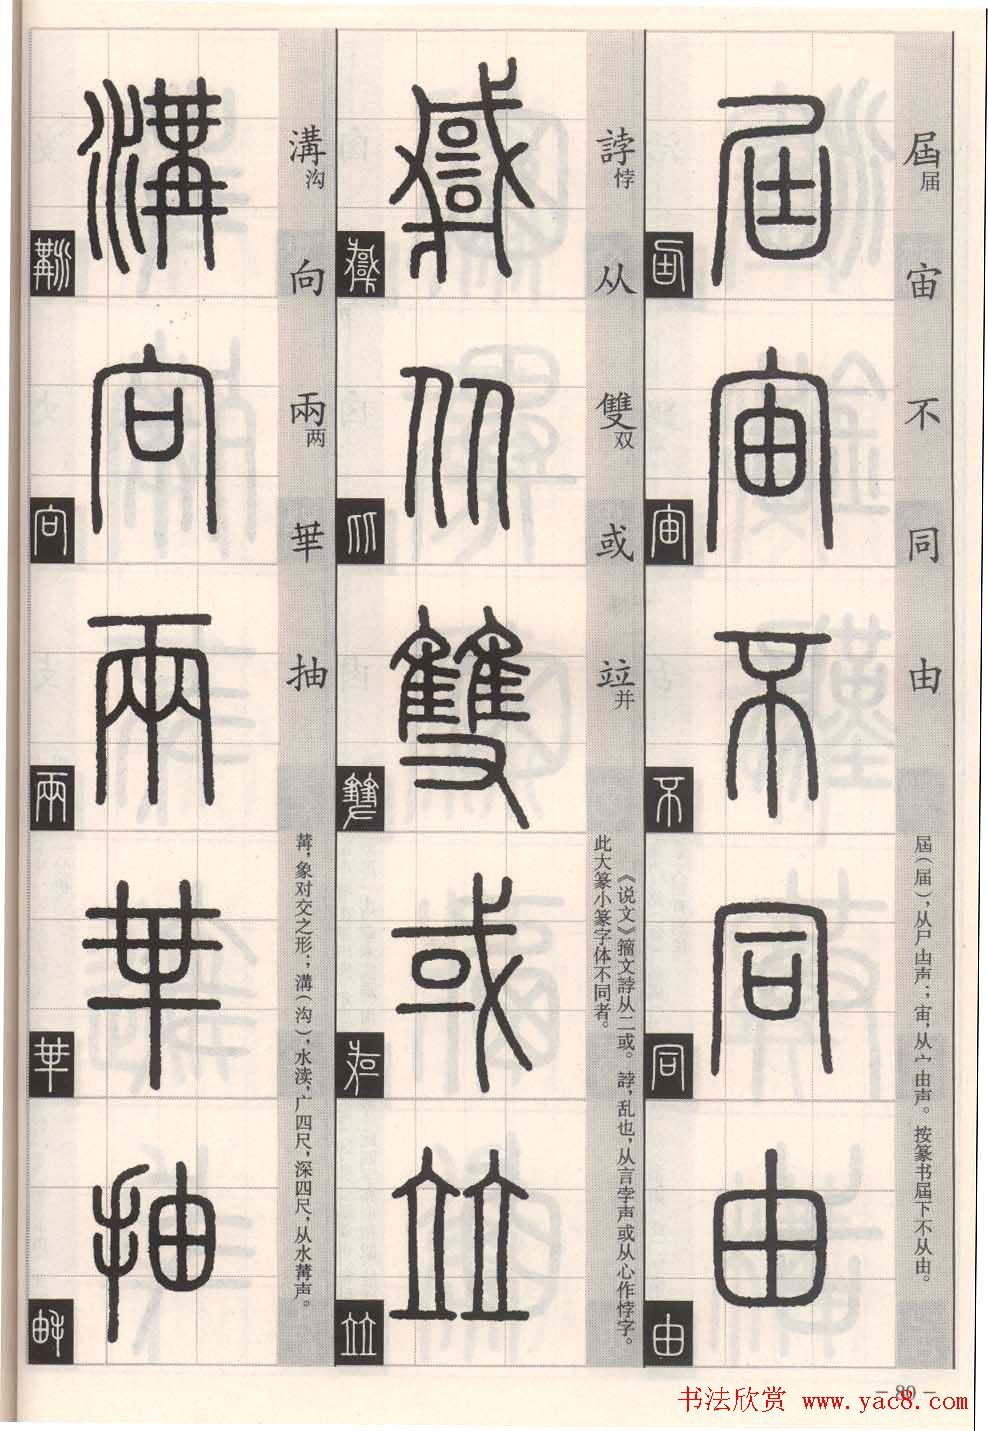 屆届宙不同由
屆（届），从尸凷声；宙，从宀由声。按篆书屆下不从由。
誖悖从雙双或竝并
《说文》籀文誖从二或。誖，乱也，从言孛声或从心作悖字。
此大篆小篆字体不同者。
溝沟向兩两華抽
冓，象对交之形；溝（沟），水渎，广四尺，深四尺，从水冓声。
屆
宙
不
同
由
从
雙
或
竝
溝
向
兩
華
抽
－80－
书法欣赏 www.yac8.com